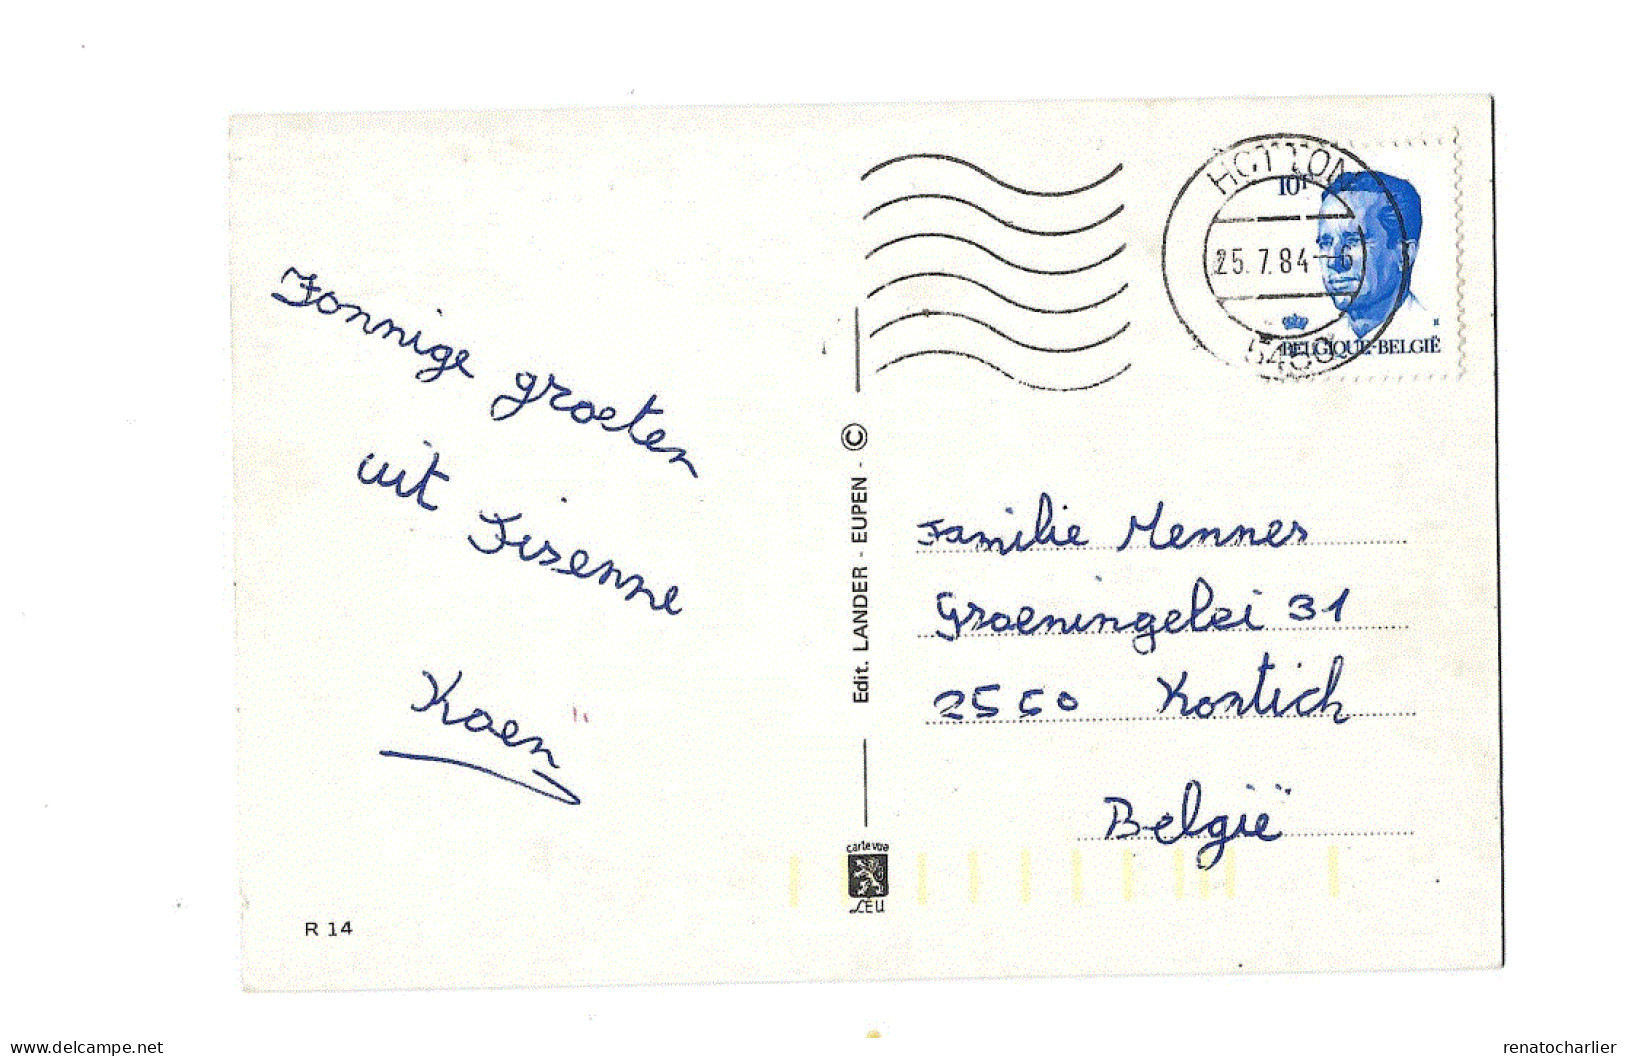 Zonnige groeten
uit Fisenne
Koen
R 14
Edit. LANDER - EUPEN - ©
carte vue
LEU
HOTTON
25.7.84
10F
BELGIQUE-BELGIË
Familie Mennes
Groeningelei 31
2550 Kontich
België
delcampe.net
renatocharlier